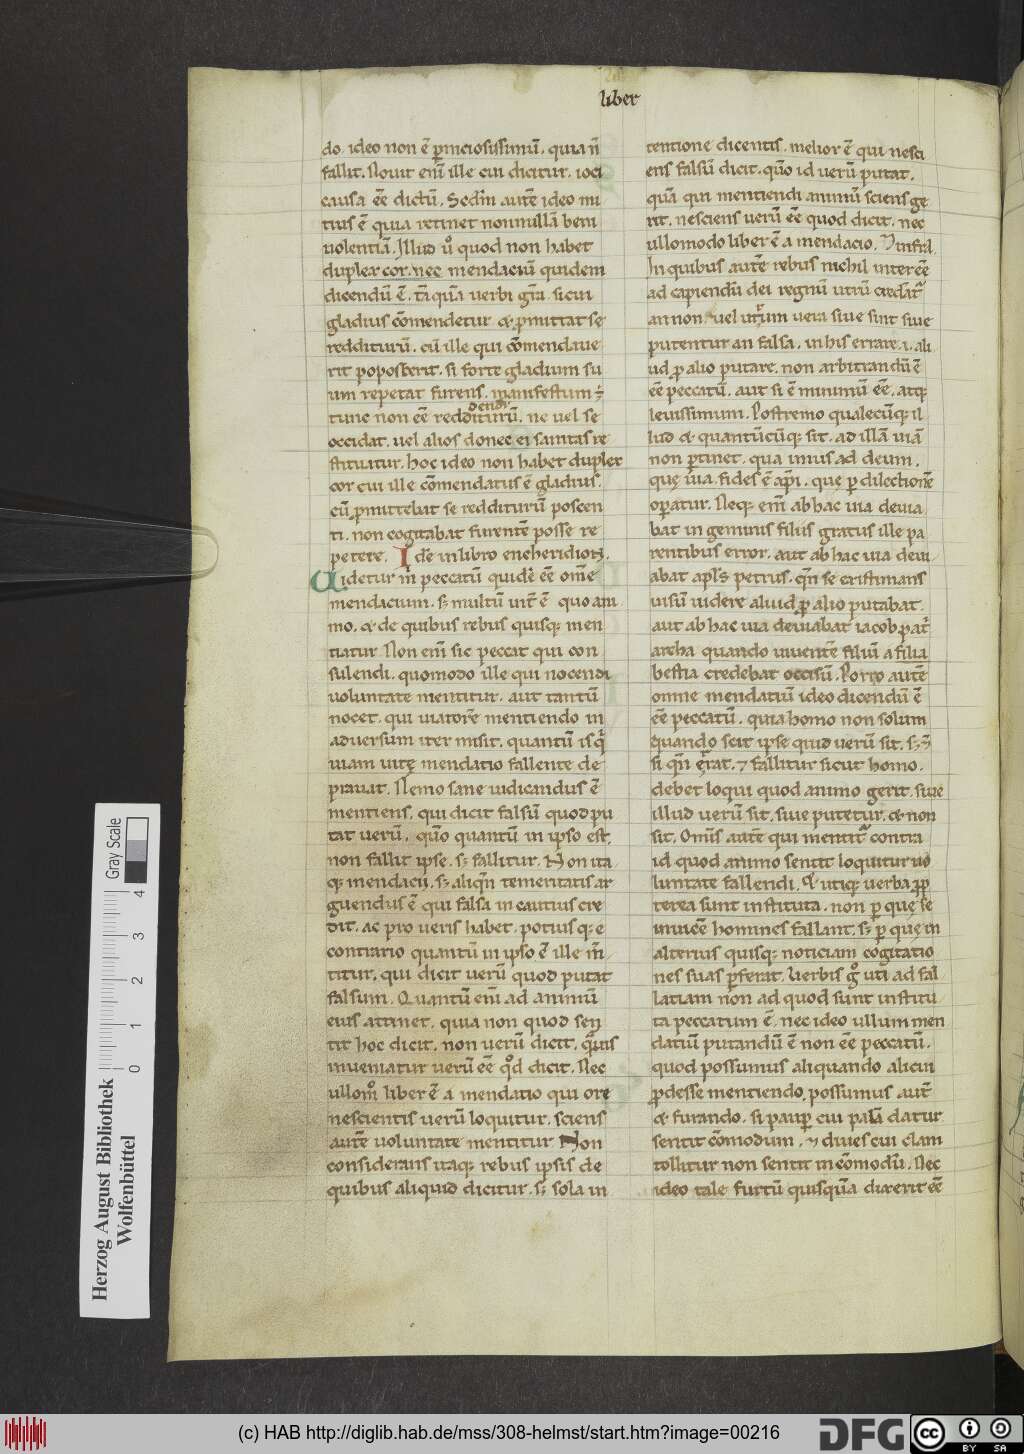 liber
do. ideo non ē ꝑniciosissimū. quia ñ
fallit. Nouit eniꝫ ille cui dicitur. ioci
causa eē dictū. Sedm̄ autē ideo mi
tius ē quia retinet nonnullā beni
uolentiā. Illud ū quod non habet
duplex cor. nec mendaciū quidem
dicendū ē. tāquā uerbi gr̄a. si cui
gladius cōmendetur & ꝓmittat se
redditurū. cū ille qui cōmendaue
rit poposcerit. si forte gladium su
um repetat furens. manifestum ÷
tunc non eē redditurū. ne uel se
dendū
occidat. uel alios donec ei sanitas re
stituitur. hoc ideo non habet duplex
cor cui ille cōmendatus ē gladius.
cū ꝓmittebat se redditurū poscen
ti. non cogitabat furentē posse re
petere. Idē in libro encheridion.
Uidetur m̄ peccatū quidē eē om̄e
mendacium. sꝫ multū int̄ ē quo ani
mo. & de quibus rebus quisqꝫ men
tiatur. Non eniꝫ sic peccat qui con
sulendi. quomodo ille qui nocendi
uoluntate mentitur. aut tantū
nocet. qui uiatorē mentiendo in
aduersum iter misit. quantū is q̄
uiam uitę mendatio fallente de
prauat. Nemo sane iudicandus ē
mentiens. qui dicit falsū quod pu
tat uerū. qm̄o quantū in ipso est.
non fallit ipse. sꝫ fallitur. Non ita
qꝫ mendacii. sꝫ aliqn̄ temeritatis ar
guendus ē qui falsa incautius cre
dit. ac pro ueris habet. potiusqꝫ e
contrario quantū in ipso ē ille m̄
titur. qui dicit uerū quod putat
falsum. Quantū eniꝫ ad animū
eius attinet. quia non quod sen
tit hoc dicit. non uerū dicit. q̄uis
inueniatur uerū eē q̊d dicit. Nec
ullom̊ liber ē a mendatio qui ore
nescientis uerū loquitur. sciens
autē uoluntate mentitur. Non
consideratis itaqꝫ rebus ipsis de
quibus aliquid dicitur. sꝫ sola in
tentione dicentis. melior ē qui nesci
ens falsū dicit. qm̄o id uerū putat.
quā qui mentiendi animū sciens ge
rit. nesciens uerū eē quod dicit. nec
ullomodo liber ē a mendacio.
In quibus autē rebus nichil interēē
ad capiendū dei regnū utrū credat᷑
an non. uel utrum uera siue sint siue
putentur an falsa. in his errare .i. ali
ud ꝓ alio putare. non arbitrandū ē
eē peccatū. aut si ē minimū eē. atqꝫ
leuissimum. Postremo qualecūqꝫ il
lud & quantūcūqꝫ sit. ad illā uiā
non ꝑtinet. qua imus ad deum.
quę uia. fides ē xp̄i. quę ꝑ dilectionē
oꝑatur. Neqꝫ eniꝫ ab hac uia deuia
bat in geminis filiis gratus ille pa
rentibus error. aut ab hac uia deui
abat apl̄s petrus. qn̄ se existimans
uisū uidere aliud ꝓ alio putabat.
aut ab hac uia deuiabat iacob pat̄
archa quando uiuentē filiū a filia
bestia credebat occisū. Porro autē
omne mendatiū ideo dicendū ē
eē peccatū. quia homo non solum
quando scit ipse quid uerū sit. sꝫ
si qn̄ errat. ⁊ fallitur sicut homo.
debet loqui quod animo gerit. siue
illud uerū sit. siue putetur. & non
sit. Omīs autē qui mentit᷑ contra
id quod animo sentit loquitur uo
luntate fallendi. & utiqꝫ uerba ꝓp
terea sunt instituta. non ꝑ quę se
inuicē homines fallant. sꝫ ꝑ quę in
alterius quisqꝫ noticiam cogitatio
nes suas ꝑferat. Uerbis g̊ uti ad fal
latiam non ad quod sunt institu
ta peccatum ē. nec ideo ullum men
datiū putandū ē non eē peccatū.
quod possumus aliquando alicui
ꝓdesse mentiendo. possumus aut̄
& furando. si pauꝑ cui palā datur
sentit cōmodum. ⁊ diues cui clam
tollitur non sentit incōmodū. Nec
ideo tale furtū quisquā dixerit eē
Herzog August Bibliothek
Wolfenbüttel
Gray Scale
0 1 2 3 4
(c) HAB http://diglib.hab.de/mss/308-helmst/start.htm?image=00216
DFG
cc BY SA